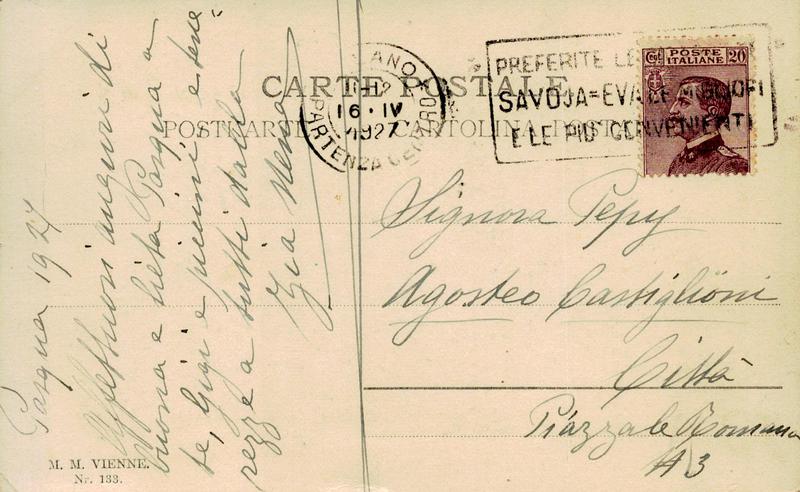 CARTE POSTALE
POSTCARD CARTOLINA POSTALE
MILANO
11-12
16 · IV
1927
PARTENZA CENTRO
PREFERITE LE
SAVOJA=EVA LE MIGLIORI
E LE PIÙ CONVENIENTI
POSTE ITALIANE
Cent. 20
Pasqua 1927
Affettuosi auguri di
buona e lieta Pasqua a
te, Gigi e piccini e tene=
rezze a tutti dalla
Zia
Signora Pepy
Agosteo Castiglioni
Città
Piazzale Romana
N 3
M. M. VIENNE.
Nr. 133.